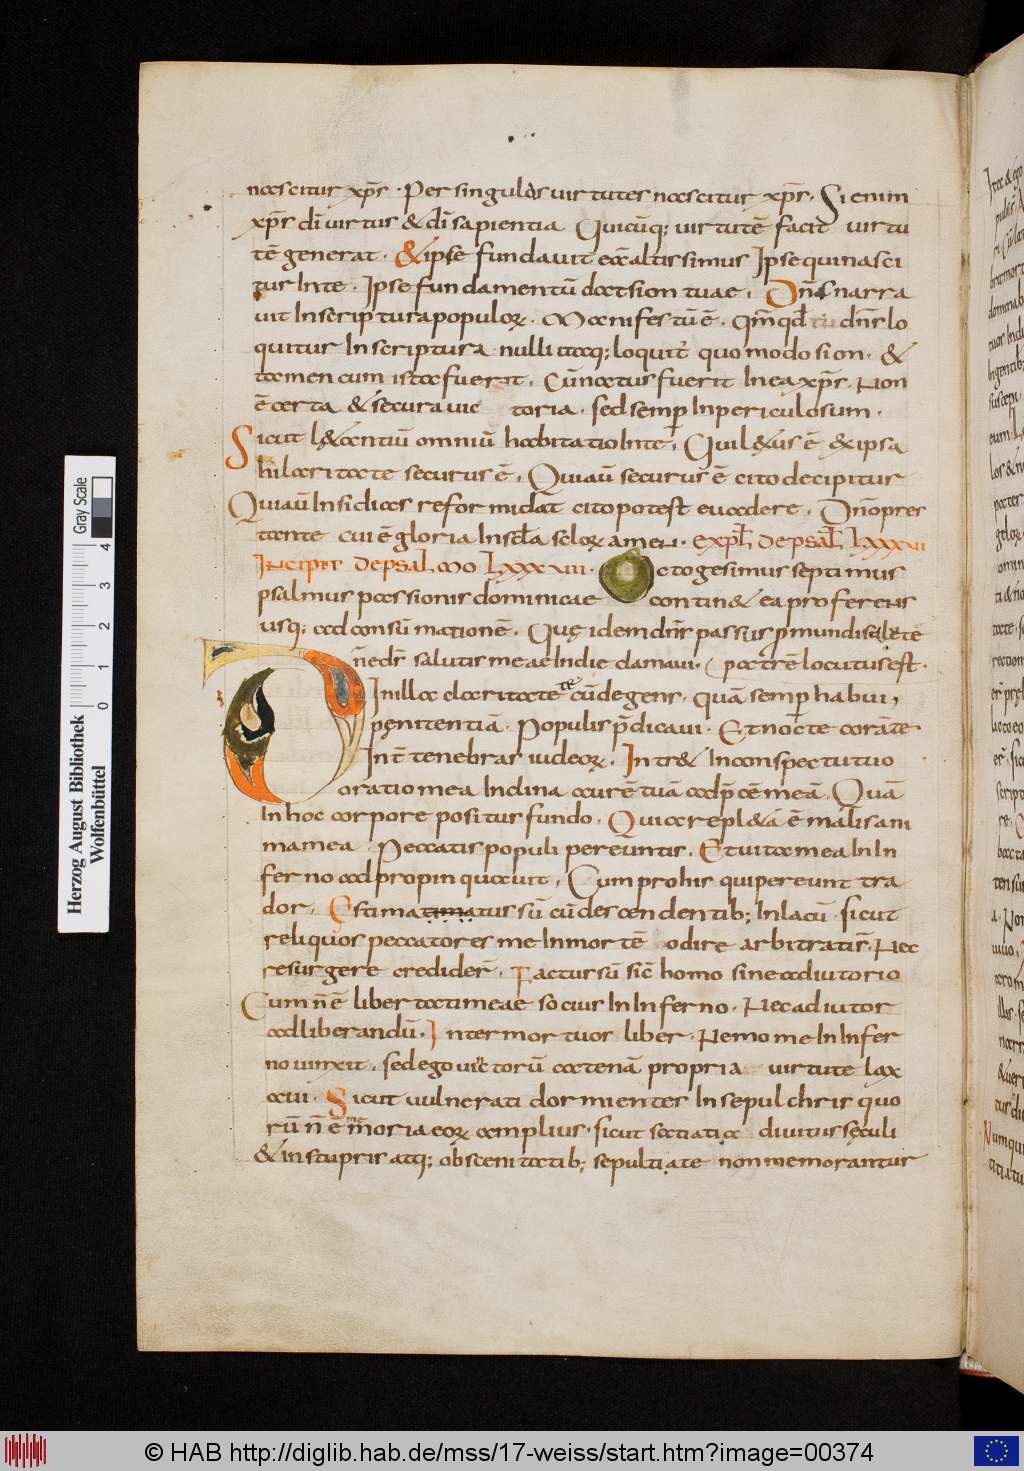 nascitur xp̄s · Per singulas uirtutes nascitur xp̄s · Si enim
xp̄s dī uirtus & dī sapientia Quicūq; uirtutē facit uirtu
tē generat · & ipse fundauit eā altissimus Ipse qui nasci
tur In te · Ipse fundamentū â sion tuae · Dn̄s narra
uit In scriptura populoꝝ · Manifestū ē · Qm̄ qd̄ dn̄s lo
quitur In scriptura nulli itaq; loquit̄ quomodo sion · &
tamen cum ista fuerit · Cū natus fuerit In ea xp̄s · Non
ē certa & secura uic toria · sed semp̄ In periculosum ·
Sicut l&antiū omniū habitatio In te · Qui l&us ē & ipsa
hilaritate securus ē · Qui aū securus ē cito decipitur
Qui aū Insidias reformidat cito potest euadere · Dn̄o pres
tante cui ē gloria In scl̄a scloꝝ amen · expl̄ de psal̄ LXXXVI
Incipit de psal̄mo LXXXVII · Octogesimus septimus
psalmus passionis dominicae contin& ea proferens
usq; ad consūmationē · Quę idem dn̄s passus p mundi salutē
Dn̄e ds̄ salutis meae In die clamaui · patrē locutus est ·
In illa claritate cū degens · quā semp̄ habui,
pęnitentiā · Populis p̄dicaui · Et nocte corā te
Int̄ tenebras iudeoꝝ · Intr& In conspectu tuo
oratio mea Inclina aurē tuā ad p̄cē meā · Quā
In hoc corpore positus fundo · Quia repl&a ē malis ani
ma mea · Peccatis populi pereuntis · Et uita mea In In
ferno adpropinquauit · Cum pro his qui pereunt tra
dor · Estimatimatus sū cū descendentib; In lacū · sicut
reliquos peccatores me In mortē odire arbitrati s̄ · Nec
resurgere credider̄ · Factus sū sic̄ homo sine adiutorio
Cum n̄ ē liberta ti meae socius In Inferno · Nec adiutor
ad liberandū · Inter mortuos liber · Nemo me In Infer
no uinxit · sed ego uictorū catenā propria uirtute lax
aui · Sicut uulnerati dormientes In sepulchris quo
rū n̄ ē memoria eoꝝ amplius · sicut satiati a diuitiis sęculi
& in stupris atq; obscenitatib; sepulti a te non memorantur
Herzog August Bibliothek
Wolfenbüttel
Gray Scale
0 1 2 3 4
© HAB http://diglib.hab.de/mss/17-weiss/start.htm?image=00374